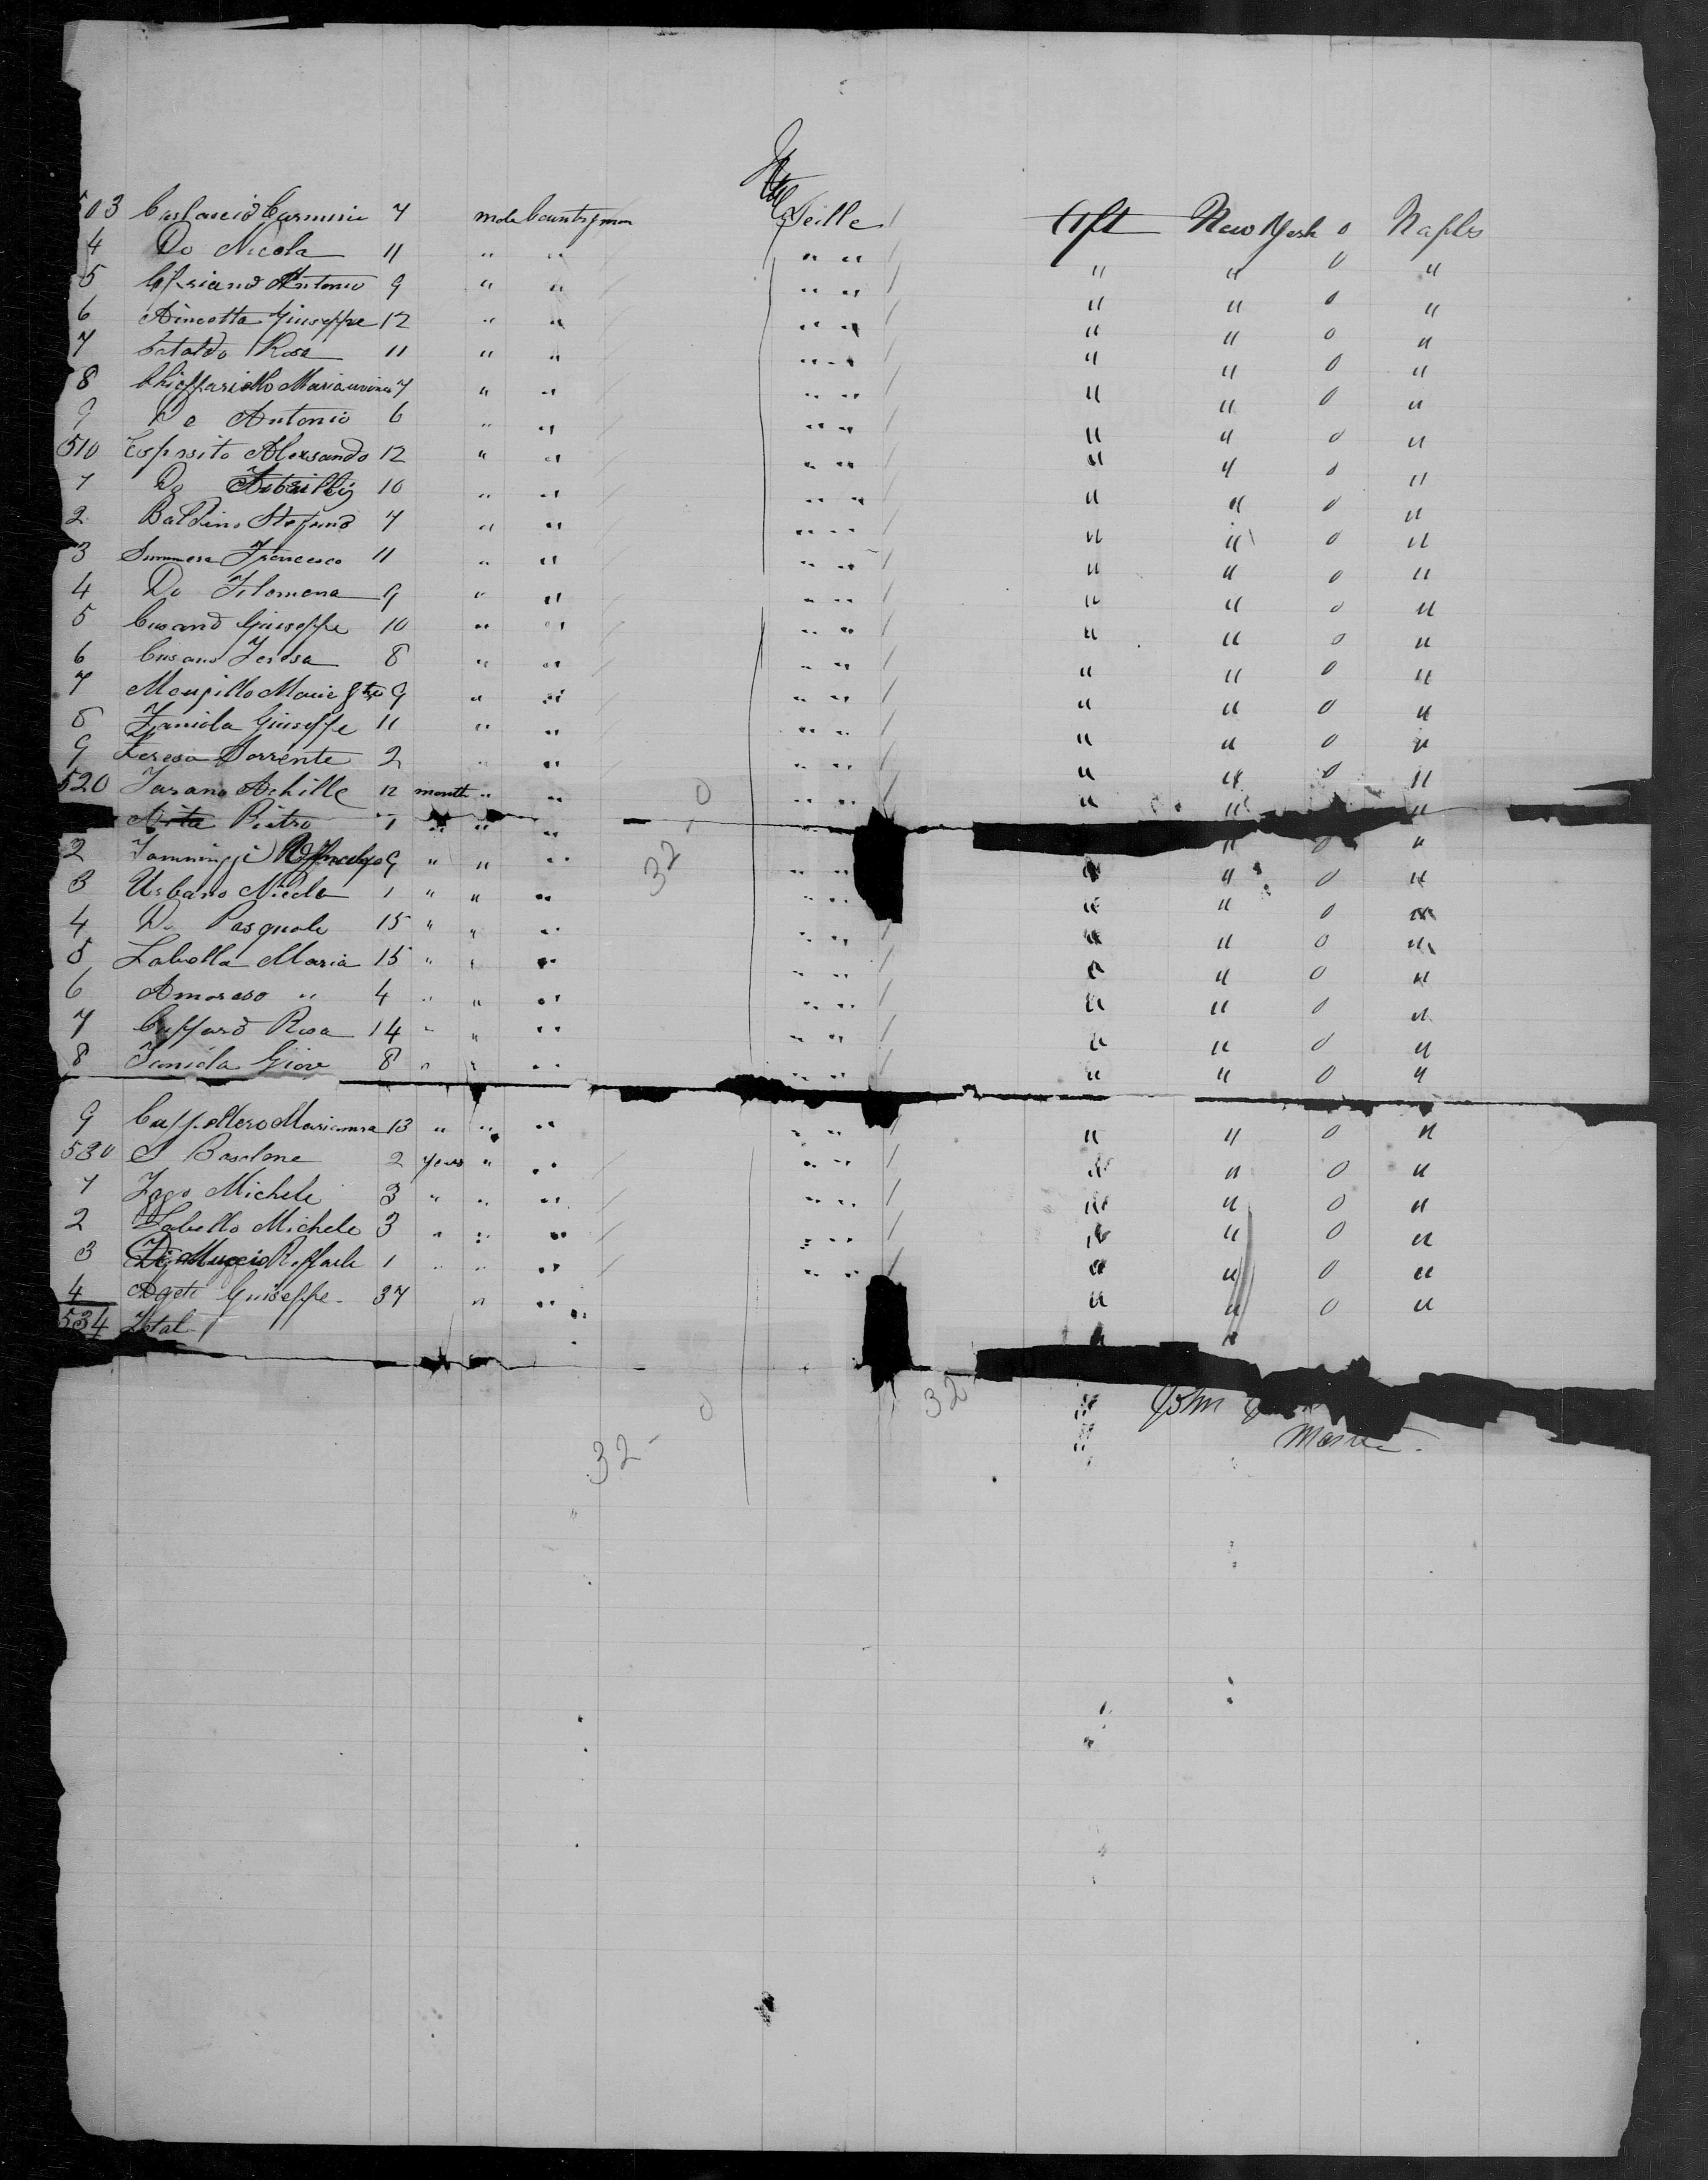 503 Carlascio Carmine 7 male Countryman Seille / Aft New York 0 Naples
4 Do Nicola 11 " " " " / " " 0 "
5 Cipriano Antonio 9 " " " " / " " 0 "
6 Aincotta Giuseppe 12 " " " " / " " 0 "
7 Cataldo Rosa 11 " " " " / " " 0 "
8 Chieffariello 7 " " " " / " " 0 "
9 Do Antonio 6 " " " " / " " 0 "
510 Esposito Alessando 12 " " " " / " " 0 "
1 Do 10 " " " " / " " 0 "
2 Baldino Stefano 7 " " " " / " " 0 "
3 Summera Francesco 11 " " " " / " " 0 "
4 Do Filomena 9 " " " " / " " 0 "
5 Cusano Giuseppe 10 " " " " / " " 0 "
6 Cusano Teresa 8 " " " " / " " 0 "
7 Maupillo Marie 9 " " " " / " " 0 "
8 Zaniola Giuseppe 11 " " " " / " " 0 "
9 Teresa Sorrente 2 " " " " / " " 0 "
520 Tarano Achille 12 month " " 0 " " / " " "
Pietro 1 " " " " "
2 9 " " " 32- " " " 0 "
3 Urbano Nicola 1 " " " " " " " 0 "
4 Do Pasquale 15 " " " " " / " " 0 "
5 Labella Maria 15 " " " " " / " " 0 "
6 Amoroso " 4 " " " " " / " " 0 "
7 Cuffaro Rosa 14 " " " " " / " " 0 "
8 Taniola Giove 8 " " " " " / " " 0 "
9 13 " " " " " / " " 0 "
530 Basolone 2 years " " " " / " " 0 "
1 Zago Michele 3 " " " " " / " " 0 "
2 Labello Michele 3 " " " " " / " " 0 "
3 Di Muccio Raffaele 1 " " " " " / " " 0 "
4 Agete Guiseppe 37 " " " " 0 "
534 Total
0 32 John
32- Master.